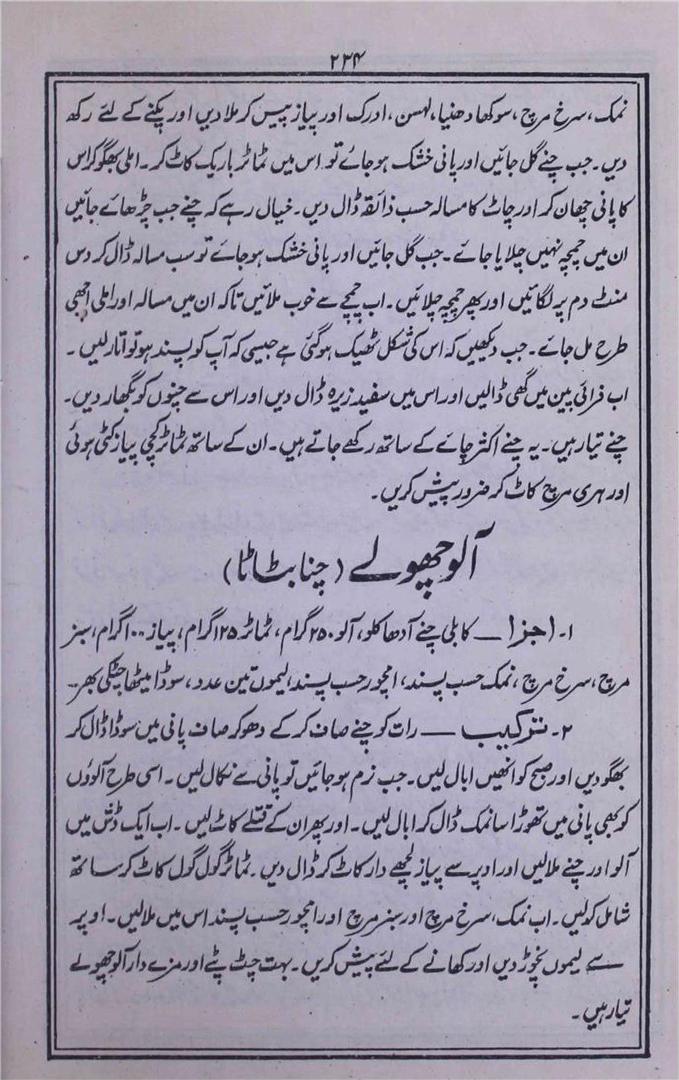 ۲۳۴
نمک، سرخ مرچ، سوکھا دھنیا، لہسن، ادرک اور پیاز پیس کر ملا دیں اور پکنے کے لئے رکھ
دیں۔ جب چنے گل جائیں اور پانی خشک ہو جائے تو اس میں ٹماٹر باریک کاٹ کر۔ املی بھگو کر اس
کا پانی چھان کر اور چاٹ کا مسالہ حسب ذائقہ ڈال دیں۔ خیال رہے کہ چنے جب چڑھائے جائیں
ان میں چمچہ نہیں چلایا جائے۔ جب گل جائیں اور پانی خشک ہو جائے تو سب مسالہ ڈال کر دس
منٹ دم پر لگائیں اور پھر چمچہ چلائیں۔ اب چمچے سے خوب ملائیں تاکہ ان میں مسالہ اور املی اچھی
طرح مل جائے۔ جب دیکھیں کہ اس کی شکل ٹھیک ہو گئی ہے جیسی کہ آپ کو پسند ہو تو اتار لیں۔
اب فرائی پین میں گھی ڈالیں اور اس میں سفید زیرہ ڈال دیں اور اس سے چنوں کو بگھار دیں۔
چنے تیار ہیں۔ یہ چنے اکثر چائے کے ساتھ رکھے جاتے ہیں۔ ان کے ساتھ ٹماٹر کچی پیاز کٹی ہوئی
اور ہری مرچ کاٹ کر ضرور پیش کریں۔
آلو چھولے (چنا بٹاٹا)
۱۔ اجزا — کابلی چنے آدھا کلو، آلو ۲۵۰ گرام، ٹماٹر ۱۲۵ گرام، پیاز ۱۰۰ گرام، سبز
مرچ، سرخ مرچ، نمک حسب پسند، امچور حسب پسند، لیموں تین عدد، سوڈا میٹھا چٹکی بھر۔
۲۔ ترکیب — رات کو چنے صاف کر کے دھو کر صاف پانی میں سوڈا ڈال کر
بھگو دیں اور صبح کو انھیں ابال لیں۔ جب نرم ہو جائیں تو پانی سے نکال لیں۔ اسی طرح آلوؤں
کو بھی پانی میں تھوڑا سا نمک ڈال کر ابال لیں۔ اور پھر ان کے قتلے کاٹ لیں۔ اب ایک ڈش میں
آلو اور چنے ملا لیں اور اوپر سے پیاز لچھے دار کاٹ کر ڈال دیں۔ ٹماٹر گول گول کاٹ کر ساتھ
شامل کر لیں۔ اب نمک، سرخ مرچ اور سبز مرچ اور امچور حسب پسند اس میں ملا لیں۔ اوپر
سے لیموں نچوڑ دیں اور کھانے کے لئے پیش کریں۔ بہت چٹ پٹے اور مزے دار آلو چھولے
تیار ہیں۔